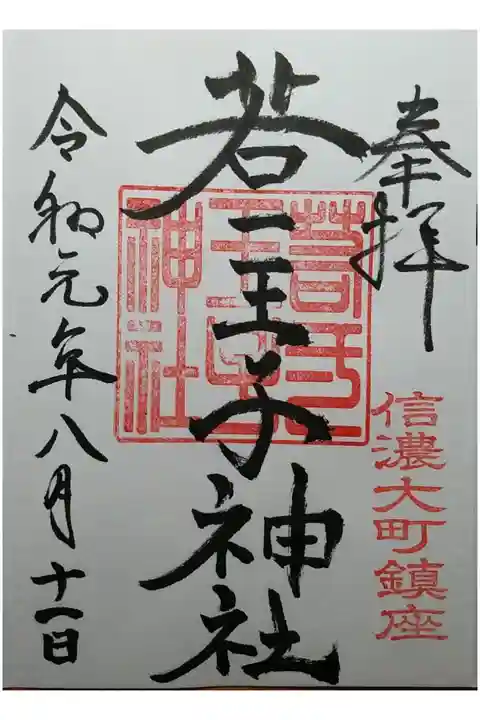 奉拝
信濃大町鎮座
若一王子神社
神社
令和元年八月十一日